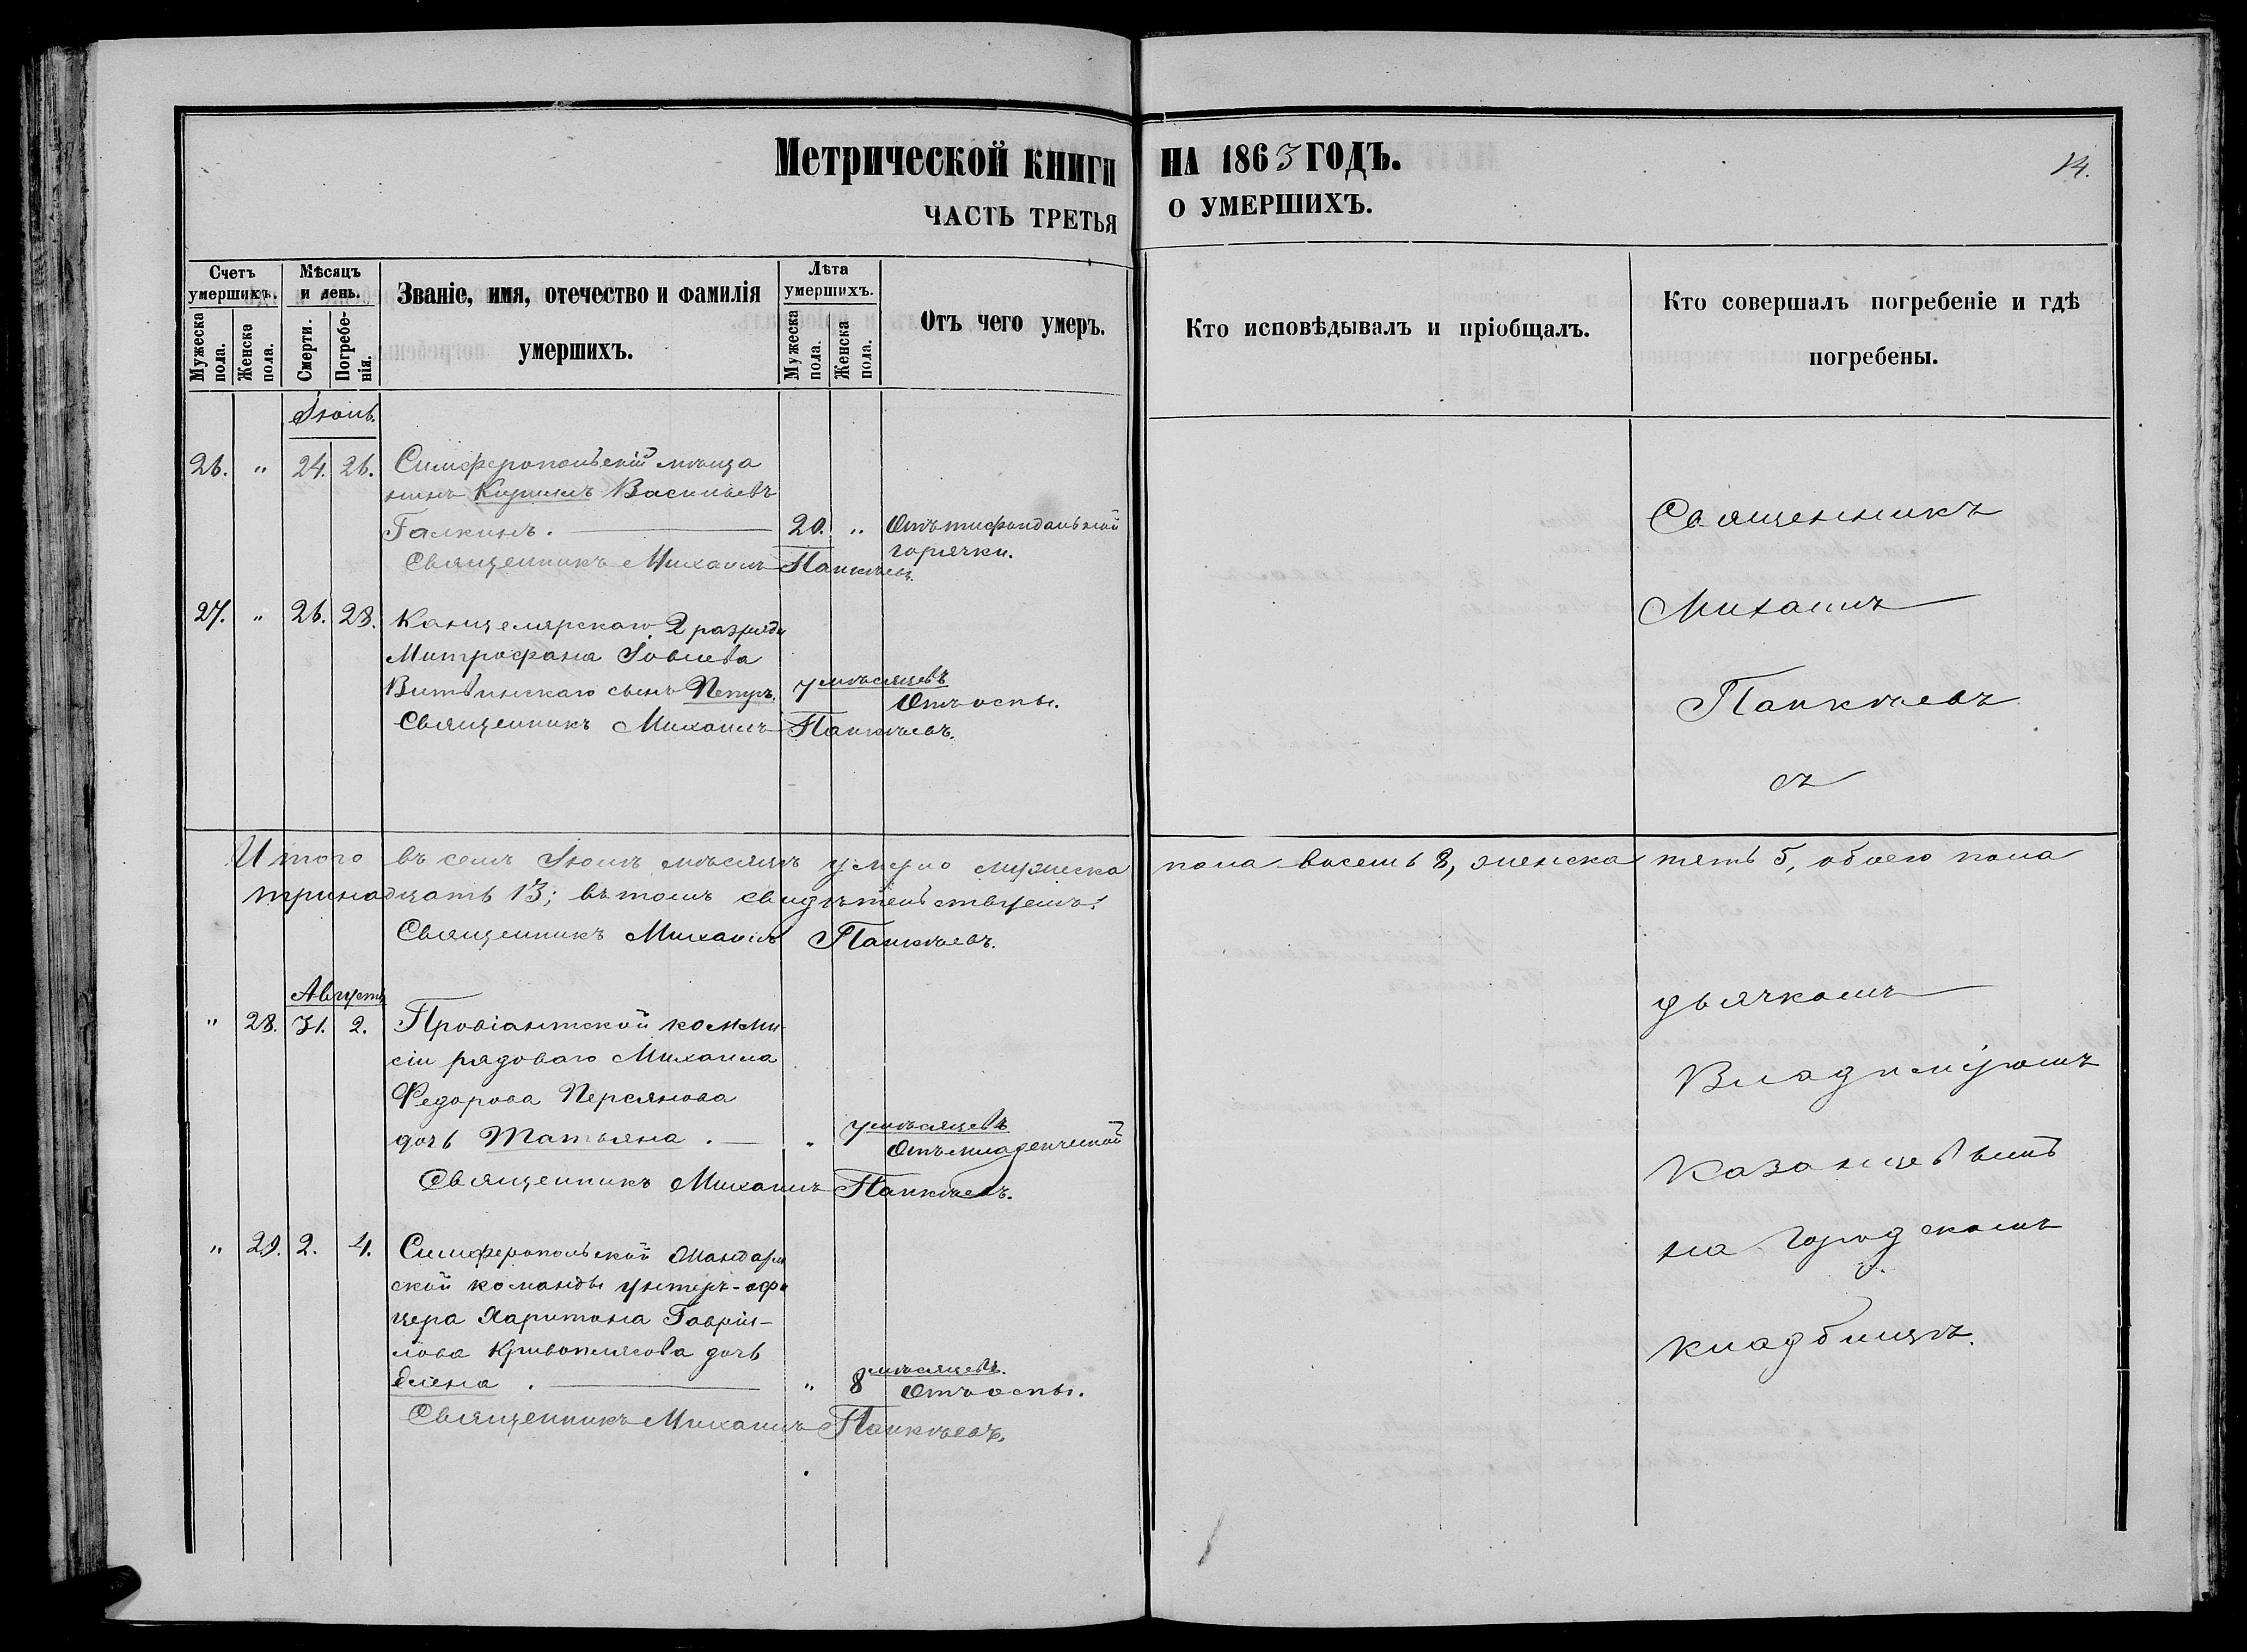 Метрической книги на 1863 годъ.
14.
часть третья о умершихъ.
Счетъ умершихъ.
Мужеска пола.
Женска пола.
Мѣсяцъ и день.
Смерти.
Погребенія.
Званіе, имя, отечество и фамилія умершихъ.
Лѣта умершихъ.
Мужеска пола.
Женска пола.
Отъ чего умеръ.
Кто исповѣдывалъ и пріобщалъ.
Кто совершалъ погребеніе и гдѣ погребены.
Іюль.
26. " 24. 26. Симферопольскій мѣща
нинъ Кириллъ Васильевъ
Галкинъ. 20. " Отъ тифоидальной
горячки.
Священникъ Михаилъ
27. " 26. 28. Канцелярскаго 2 разряда
Митрофана Іовлева
сынъ Петръ. 7 мѣсяцевъ
Отъ оспы.
Священникъ Михаилъ
Итого въ семъ Іюлѣ мѣсяцѣ умерло мужеска пола восемь 8, женска пять 5, обоего пола
тринадцать 13; въ томъ свидѣтельствуемъ:
Священникъ Михаилъ
Августъ
" 28. 31. 2. Провіантской комми-
сіи рядоваго Михаила
Федорова Персянова
дочь Татьяна. " 7 мѣсяцевъ
Отъ младенческой
Священникъ Михаилъ
" 29. 2. 4. Симферопольской Жандарм
ской команды унтеръ-офи
цера Харитона Гавріи-
лова Кривоплясова дочь
Елена. " 8 мѣсяцевъ.
Отъ оспы.
Священникъ Михаилъ
Священникъ
Михаилъ
съ
дьячкомъ
Владиміромъ
Казанцевымъ
на Городскомъ
кладбищѣ.